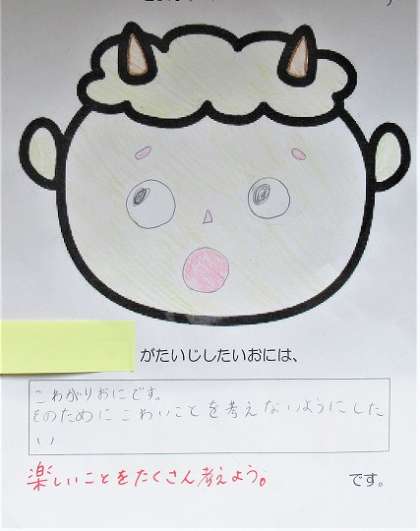 がたいじしたいおには、
こわがりおにです。
そのためにこわいことを考えないようにした
い
楽しいことをたくさん考えよう。
です。